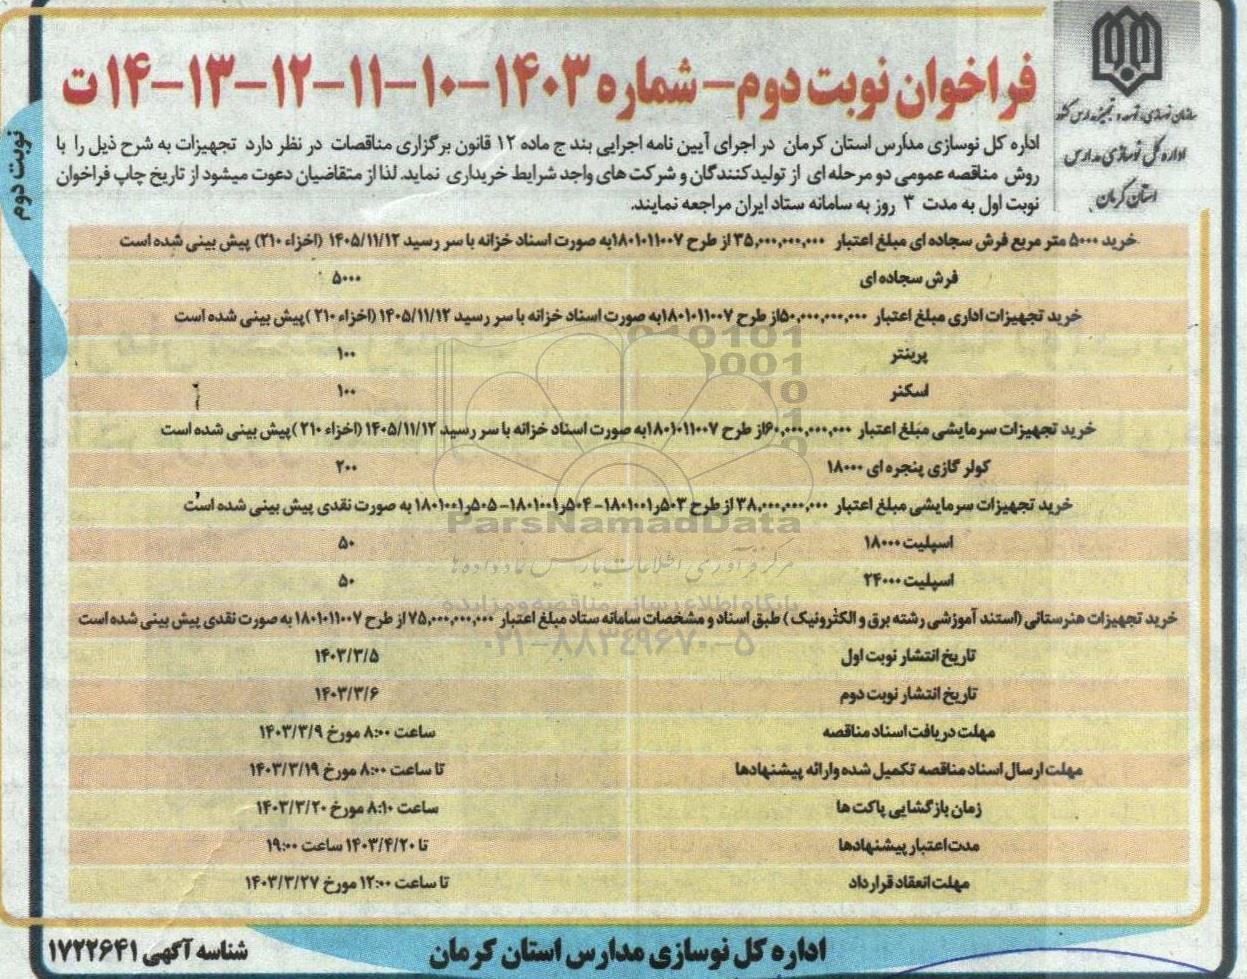 سازمان نوسازی، توسعه و تجهیز مدارس کشور
اداره کل نوسازی مدارس
استان کرمان
فراخوان نوبت دوم – شماره ۱۴۰۳-۱۰-۱۱-۱۲-۱۳-۱۴ ت
نوبت دوم
اداره کل نوسازی مدارس استان کرمان در اجرای آیین نامه اجرایی بند ج ماده ۱۲ قانون برگزاری مناقصات در نظر دارد تجهیزات به شرح ذیل را با
روش مناقصه عمومی دو مرحله ای از تولیدکنندگان و شرکت های واجد شرایط خریداری نماید. لذا از متقاضیان دعوت میشود از تاریخ چاپ فراخوان
نوبت اول به مدت ۳ روز به سامانه ستاد ایران مراجعه نمایند.
خرید ۵۰۰۰ متر مربع فرش سجاده ای مبلغ اعتبار ۳۵,۰۰۰,۰۰۰,۰۰۰ از طرح ۱۸۰۱۰۱۱۰۰۷به صورت اسناد خزانه با سر رسید ۱۴۰۵/۱۱/۱۲ (اخزاء ۲۱۰) پیش بینی شده است
فرش سجاده ای ۵۰۰۰
خرید تجهیزات اداری مبلغ اعتبار ۵۰,۰۰۰,۰۰۰,۰۰۰از طرح ۱۸۰۱۰۱۱۰۰۷به صورت اسناد خزانه با سر رسید ۱۴۰۵/۱۱/۱۲ (اخزاء ۲۱۰ )پیش بینی شده است
پرینتر ۱۰۰
اسکنر ۱۰۰
خرید تجهیزات سرمایشی مبلغ اعتبار ۶۰,۰۰۰,۰۰۰,۰۰۰از طرح ۱۸۰۱۰۱۱۰۰۷به صورت اسناد خزانه با سر رسید ۱۴۰۵/۱۱/۱۲ (اخزاء ۲۱۰ )پیش بینی شده است
کولر گازی پنجره ای ۱۸۰۰۰ ۲۰۰
خرید تجهیزات سرمایشی مبلغ اعتبار ۳۸,۰۰۰,۰۰۰,۰۰۰ از طرح ۵۰۳ر۱۸۰۱۰۰۱-۵۰۴ر۱۸۰۱۰۰۱-۵۰۵ر۱۸۰۱۰۰۱ به صورت نقدی پیش بینی شده است
اسپلیت ۱۸۰۰۰ ۵۰
اسپلیت ۲۴۰۰۰ ۵۰
خرید تجهیزات هنرستانی (استند آموزشی رشته برق و الکترونیک ) طبق اسناد و مشخصات سامانه ستاد مبلغ اعتبار ۷۵,۰۰۰,۰۰۰,۰۰۰ از طرح ۱۸۰۱۰۱۱۰۰۷ به صورت نقدی پیش بینی شده است
تاریخ انتشار نوبت اول ۱۴۰۳/۳/۵
تاریخ انتشار نوبت دوم ۱۴۰۳/۳/۶
مهلت دریافت اسناد مناقصه ساعت ۸:۰۰ مورخ ۱۴۰۳/۳/۹
مهلت ارسال اسناد مناقصه تکمیل شده وارائه پیشنهادها تا ساعت ۸:۰۰ مورخ ۱۴۰۳/۳/۱۹
زمان بازگشایی پاکت ها ساعت ۸:۱۰ مورخ ۱۴۰۳/۳/۲۰
مدت اعتبار پیشنهادها تا ۱۴۰۳/۴/۲۰ ساعت ۱۹:۰۰
مهلت انعقاد قرارداد تا ساعت ۱۲:۰۰ مورخ ۱۴۰۳/۳/۲۷
ParsNamadData
مرکز فرآوری اطلاعات پارس نماد داده ها
پایگاه اطلاع رسانی مناقصه و مزایده
۰۲۱-۸۸۳۴۹۶۷۰-۵
اداره کل نوسازی مدارس استان کرمان
شناسه آگهی ۱۷۲۲۶۴۱